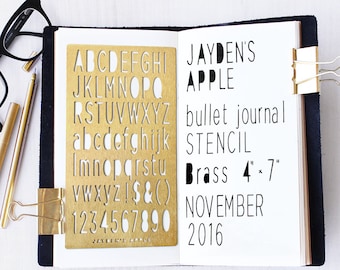 ABCDEFGHI
JKLMNOPQ
RSTUVWXYZ
abcdefghijk
lmnopqrst
uvwxyz!$&()
1234567890
JAYDEN'S APPLE
JAYDEN'S
APPLE
bullet journal
STENCIL
Brass 4" x 7"
NOVEMBER
2016